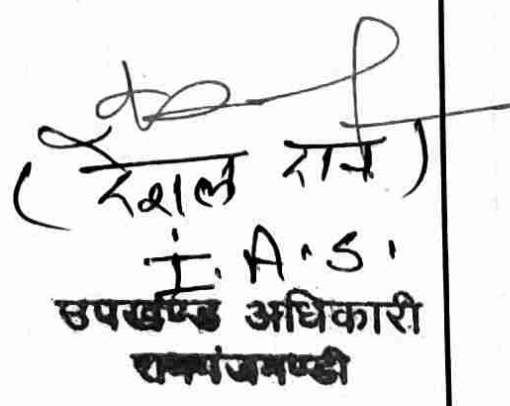 ( रेशल राम )
I. A. S.
उपखण्ड अधिकारी
रामगंजमण्डी